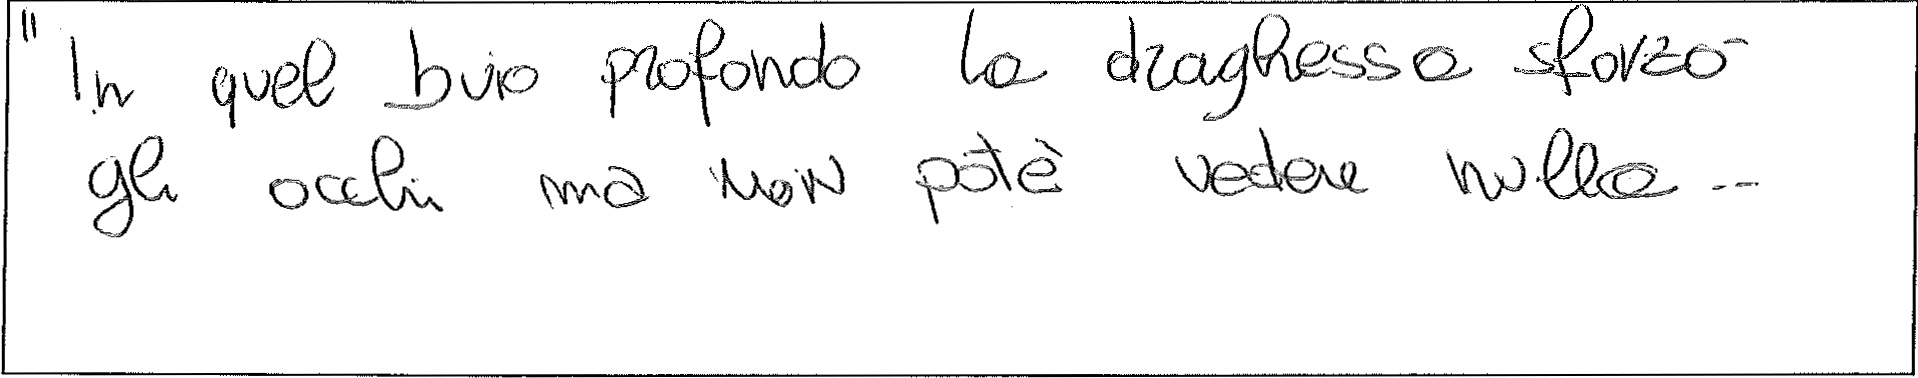 "In quel buio profondo la draghessa sforzò
gli occhi ma non potè vedere nulla...